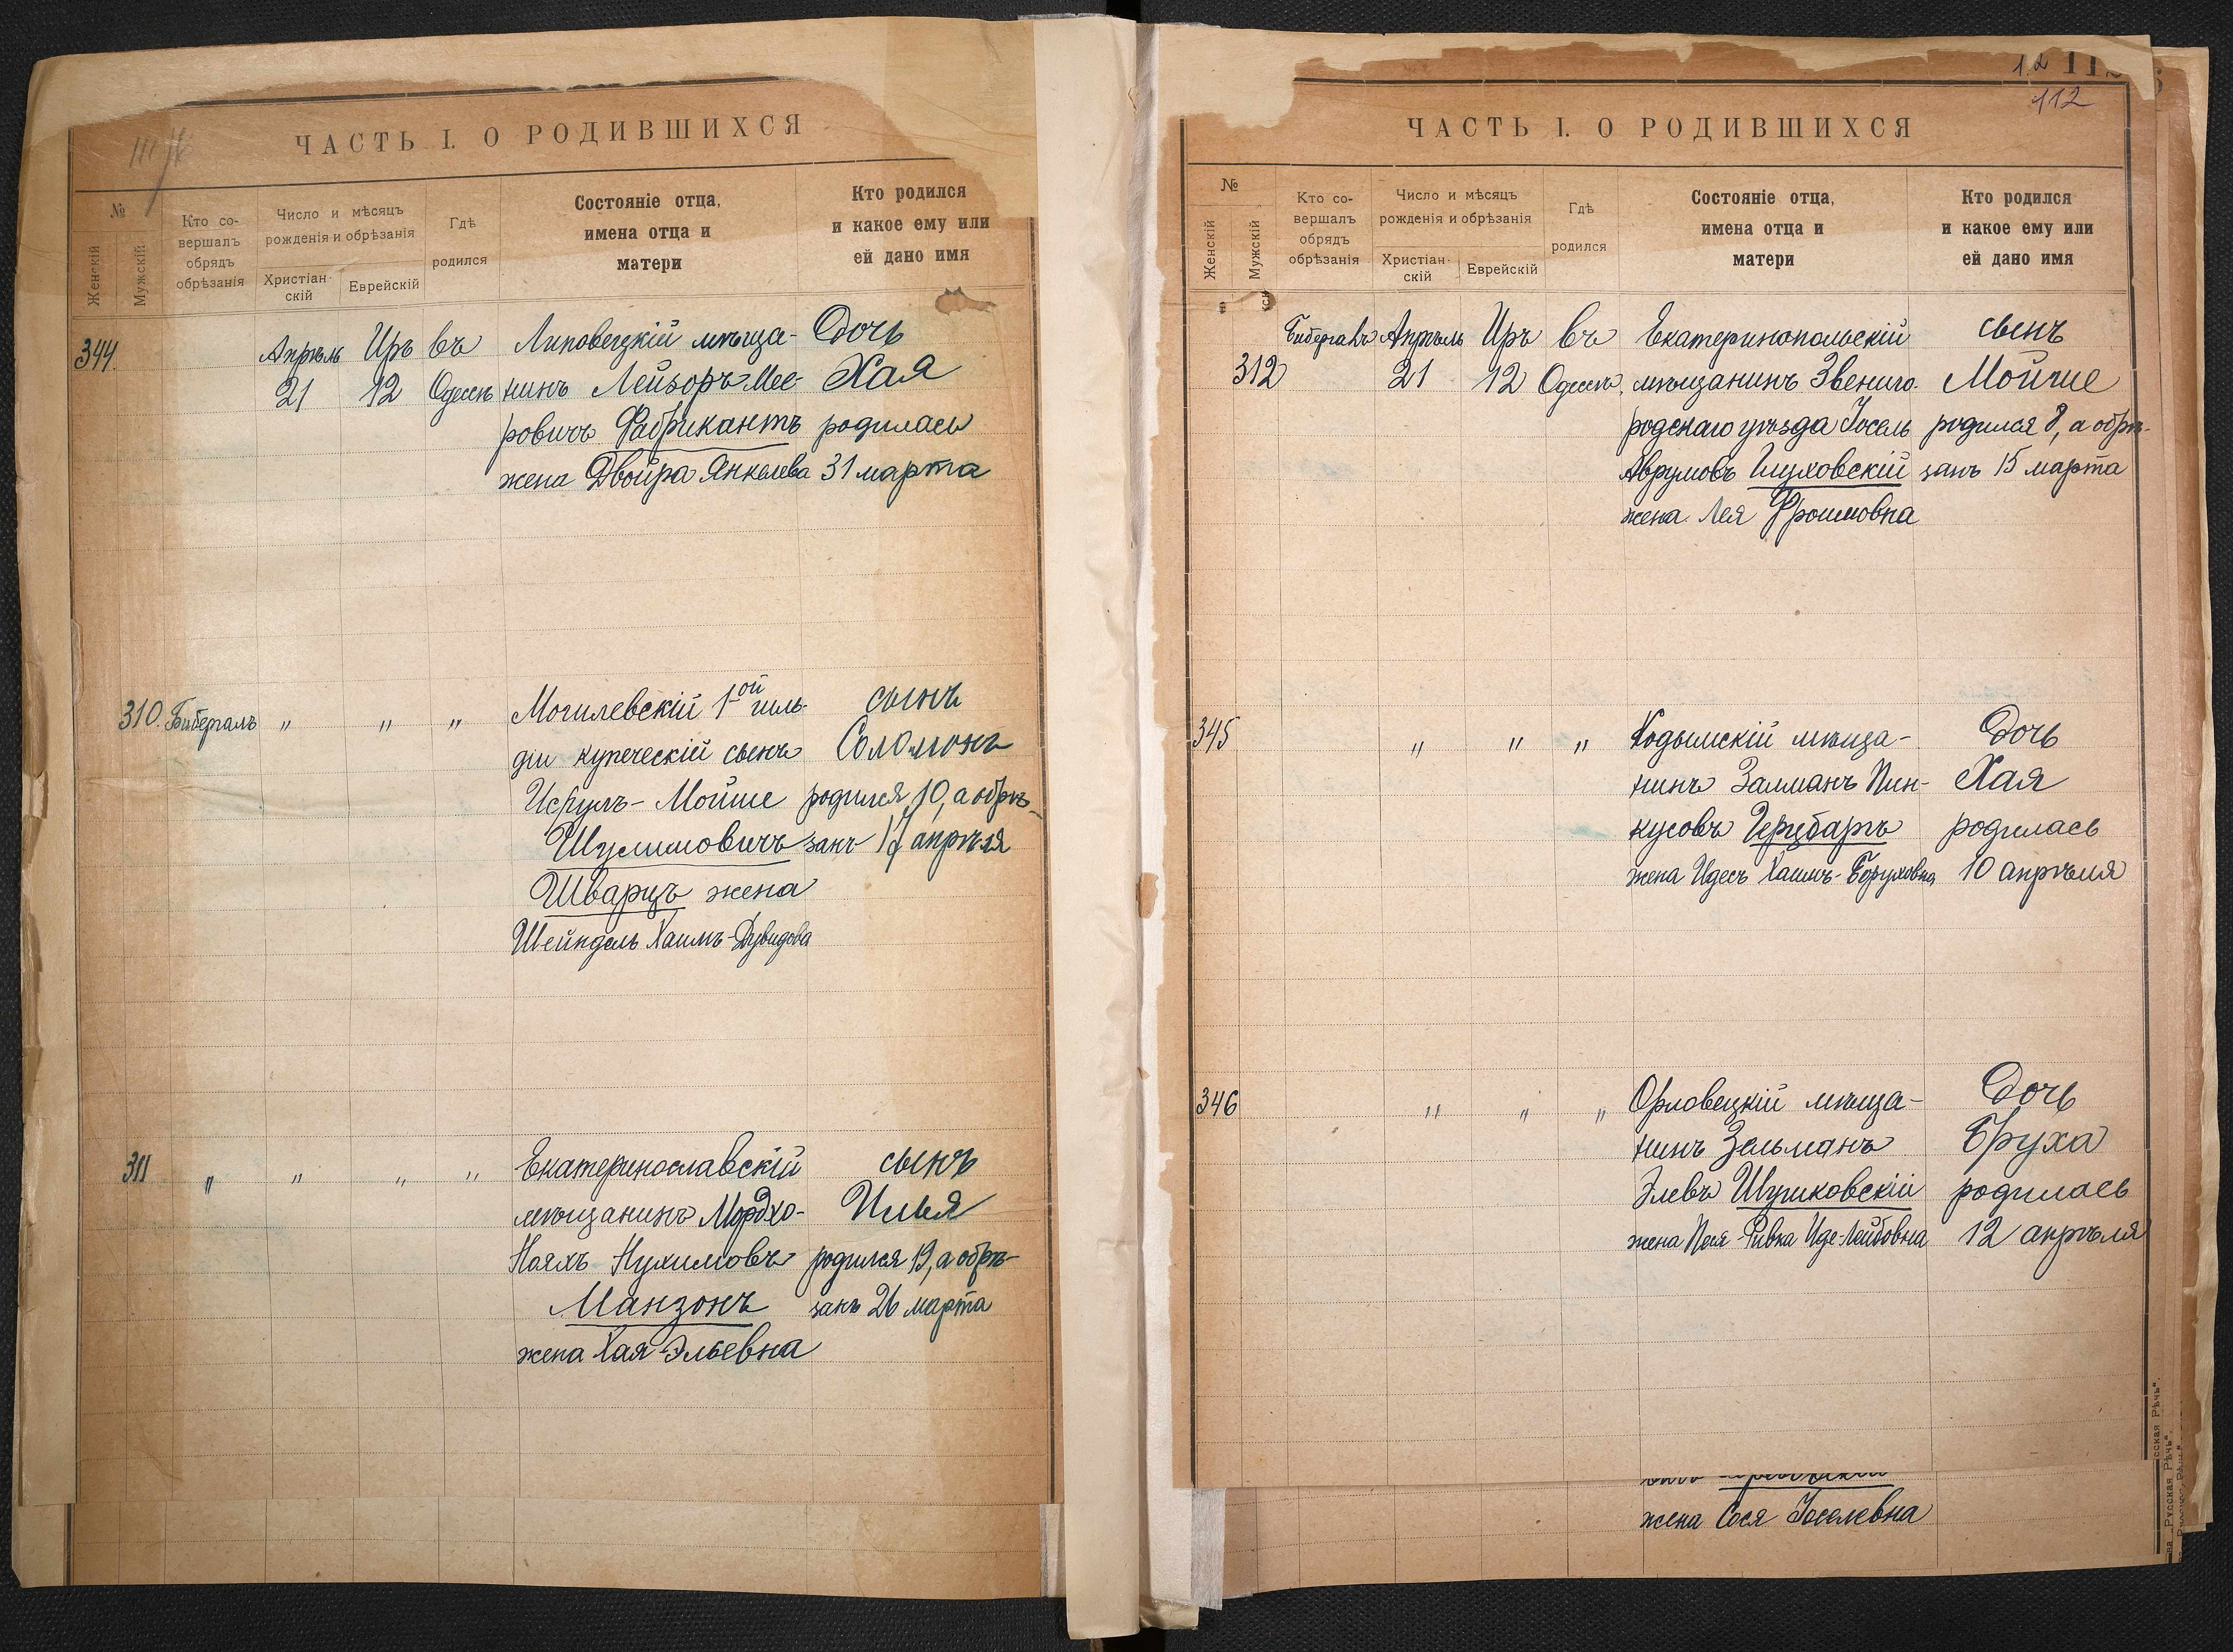 ЧАСТЬ I. О РОДИВШИХСЯ
№
Женскій
Мужскій
Кто со-
вершалъ
обрядъ
обрѣзанія
Число и мѣсяцъ
рожденія и обрѣзанія
Христіан-
скій
Еврейскій
Гдѣ
родился
Состояніе отца,
имена отца и
матери
Кто родился
и какое ему или
ей дано имя
344. Апрѣль Иръ въ Липовецкій мѣща- Дочь
21 12 Одессѣ нинъ Лейзоръ Мее- Хая
ровичъ Фабрикантъ родилась
жена Двойра Янкелева 31 марта
310. Бибергалъ " " " Могилевскій 1ой гиль- сынъ
діи купеческій сынъ Соломонъ
Исрулъ-Мойше родился 10, а обрѣ-
Шулимовичъ занъ 17 апрѣля
Шварцъ жена
Шейндель Хаимъ-Дувидова
311 " " " " Екатеринославскій сынъ
мѣщанинъ Мордхо- Илья
Нояхъ Нухимовъ родился 19, а обрѣ-
Манзонъ занъ 26 марта
жена Хая Эльевна
112
ЧАСТЬ I. О РОДИВШИХСЯ
№
Женскій
Мужскій
Кто со-
вершалъ
обрядъ
обрѣзанія
Число и мѣсяцъ
рожденія и обрѣзанія
Христіан-
скій
Еврейскій
Гдѣ
родился
Состояніе отца,
имена отца и
матери
Кто родился
и какое ему или
ей дано имя
Бибергалъ Апрѣль Иръ въ Екатеринопольскій сынъ
312 21 12 Одессѣ мѣщанинъ Звениго- Мойше
родскаго уѣзда Іосель родился 8, а обрѣ-
Аврумовъ Глуховскій занъ 15 марта
жена Лея Фроимовна
345 " " " Кодымскій мѣща- Дочь
нинъ Залманъ Пин- Хая
кусовъ Герцбаръ родилась
жена Идесъ Хаимъ-Боруховна 10 апрѣля
346 " " " Орловецкій мѣща- Дочь
нинъ Зельманъ Бруха
Элевъ Шушковскій родилась
жена Песя-Ривка Иде-Лейбовна 12 апрѣля
жена Сося Іоселевна
Русская Рѣчь".